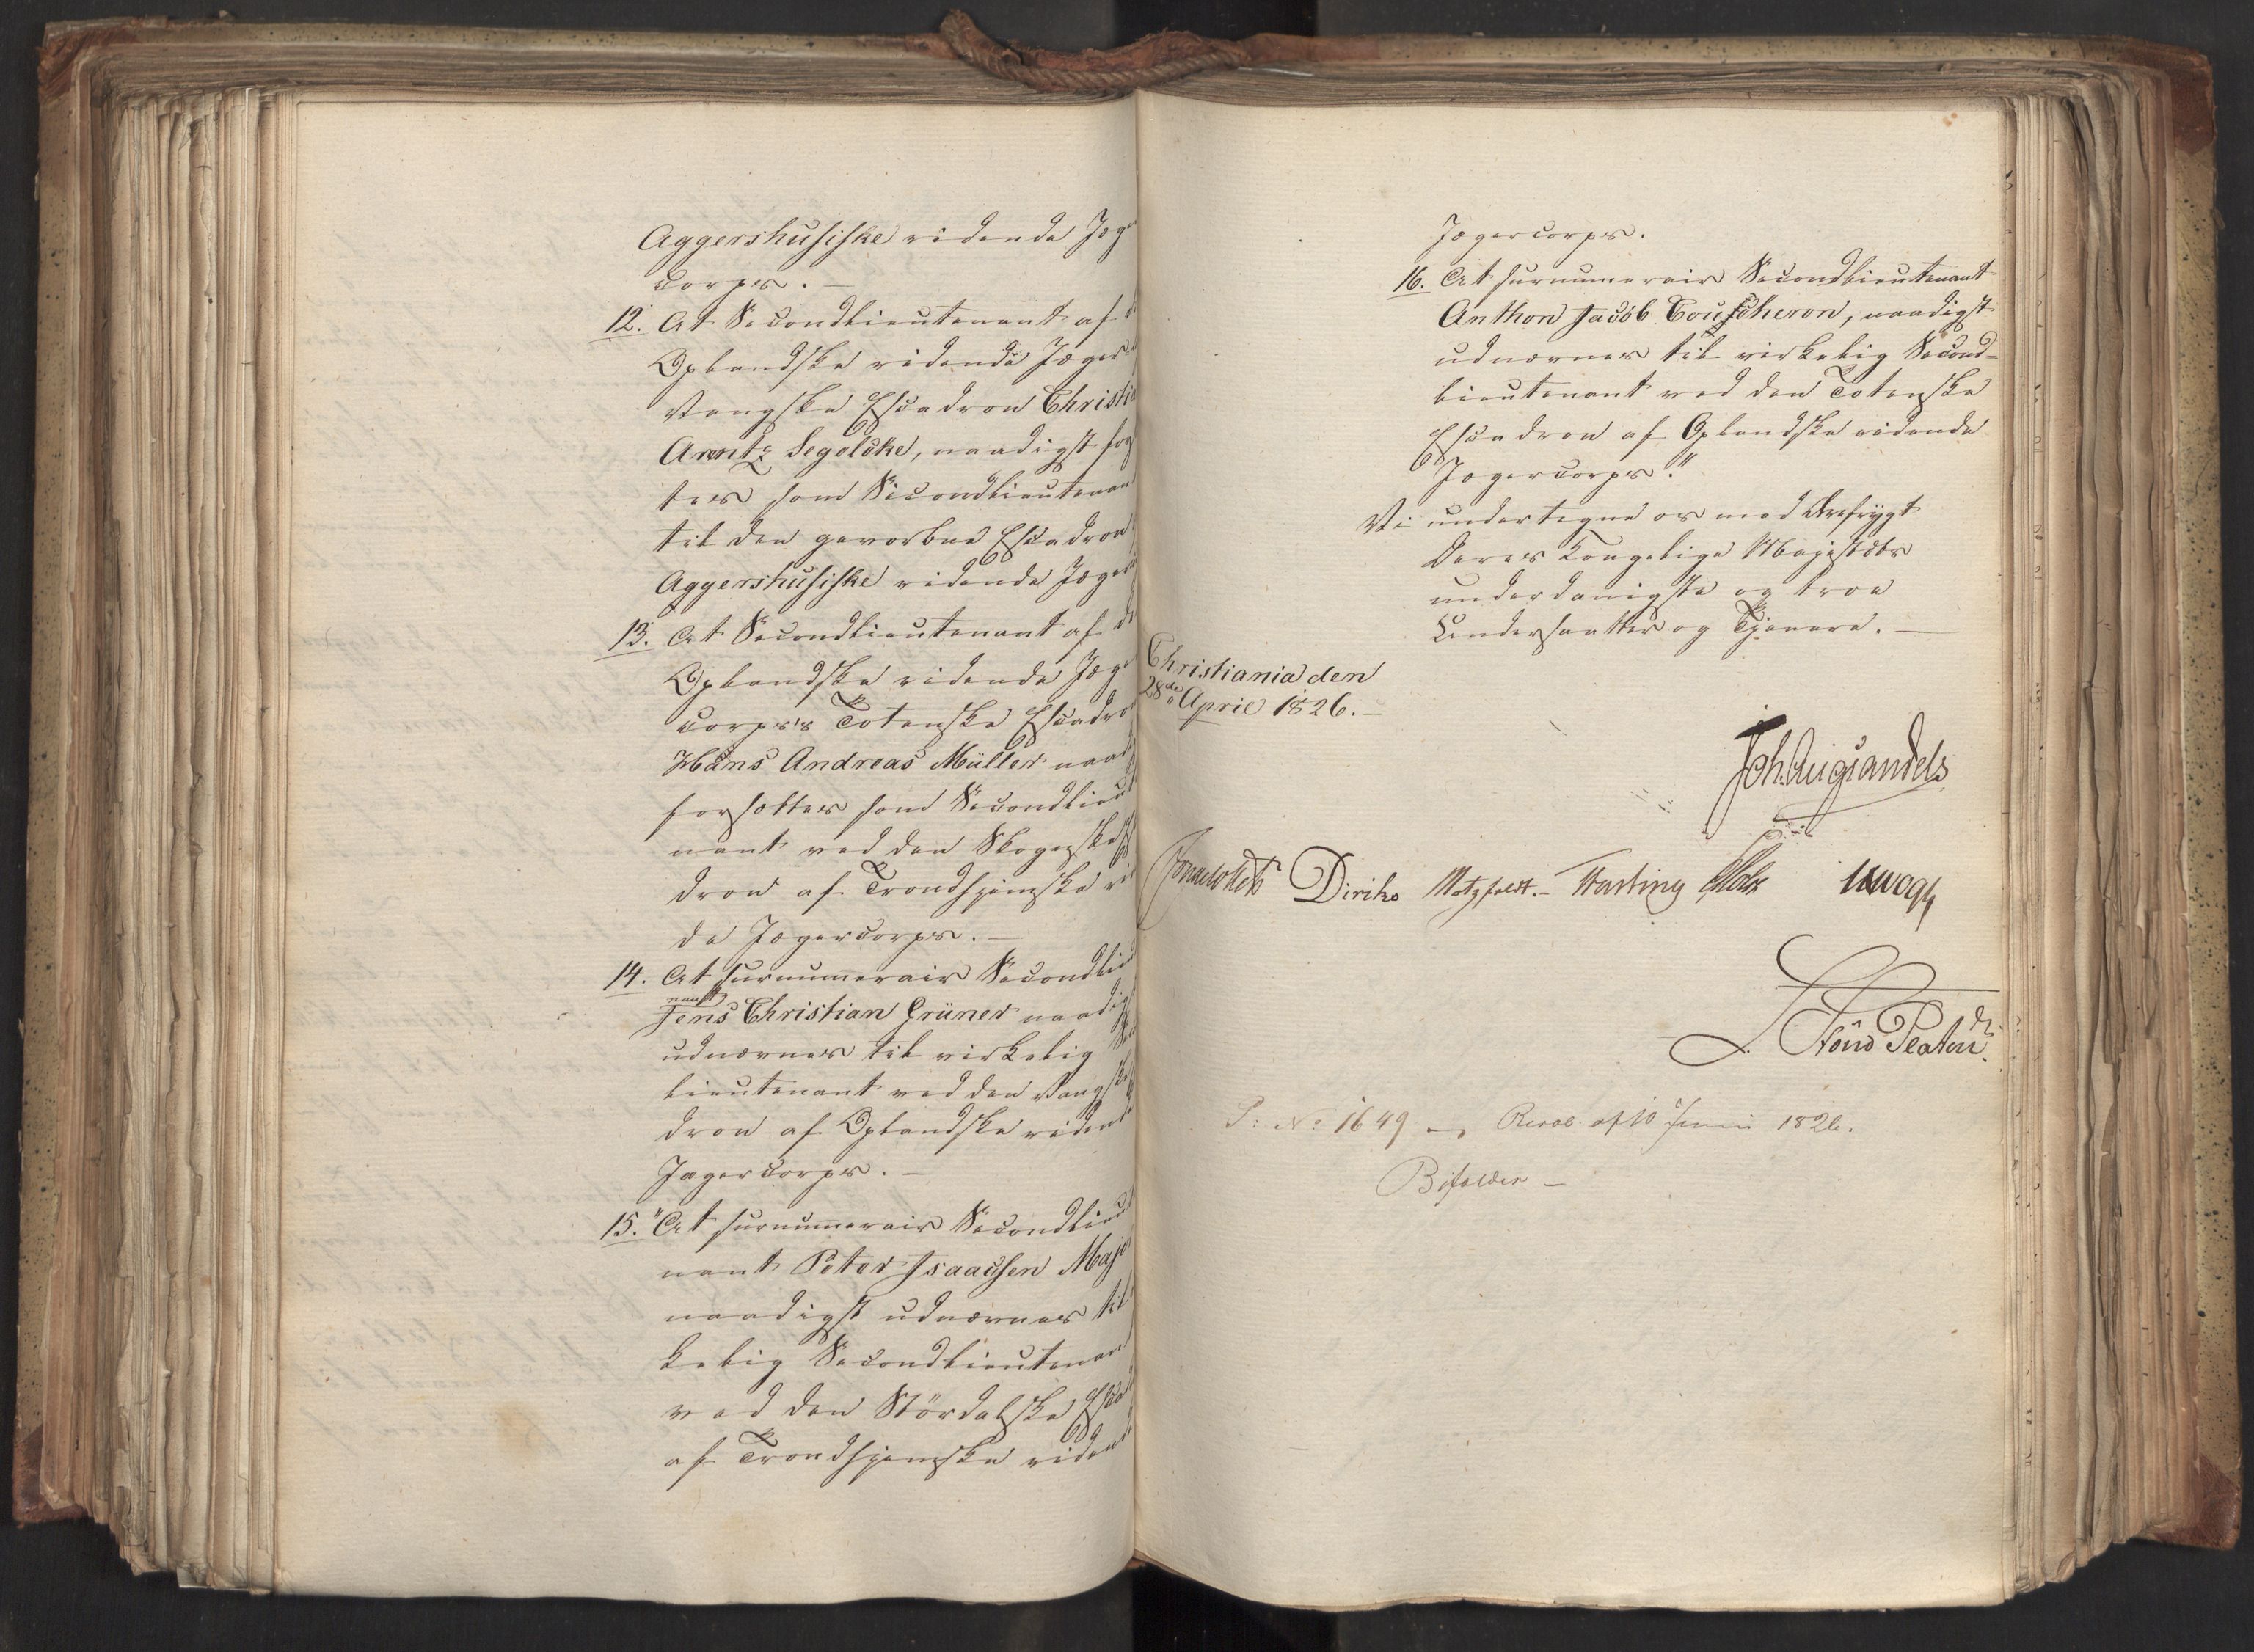 Aggershusiske ridende Jæge
corps. —
12. At Secondlieutenant af d
Oplandske ridende Jæger
Vangske Escadron Christia
Arentz Segelcke, naadigst for
ttes som Secondlieutenan
til den gevorbne Escadron
Aggershusiske ridende Jæger
13. At Secondlieutenant af de
Oplandske ridende Jæge
corps's Totenske Escadro
Hans Andreas Müller naad
forsættes som Secondlieut
nant ved den Skognske Es
dron af Trondhjemske ri
de Jægercorps. —
14. At surnummerair Secondlieu
nant
Jens Christian Grüner naadig
udnævnes til virkelig Se
lieutenant ved den Vangske
dron af Oplandske ridend
Jægercorps. —
15. At surnummerair Secondlieut
nant Peter Isaachsen Majo
naadigst udnævnes til
kelig Secondlieutenan
ved den Størdalske Esca
af Trondhjemske ridend
Jægercorps.
16. At surnumerair Secondlieutenant
Anthon Jacob Coucheron, naadigst
udnævnes til virkelig Second-
lieutenant ved den Totenske
Escadron af Oplandske ridende
Jægercorps."
Vi undertegne os med Ærefrygt
Deres Kongelige Majestæts
underdanigste og troe
Undersaatter og Tjenere. —
Christiania den
28de April 1826. —
Joh. Aug. Sandels
Diriks Motzfeldt. — Fasting Holst
P: No 1649 — Resol. af 10 Junii 1826.
Bifalden —